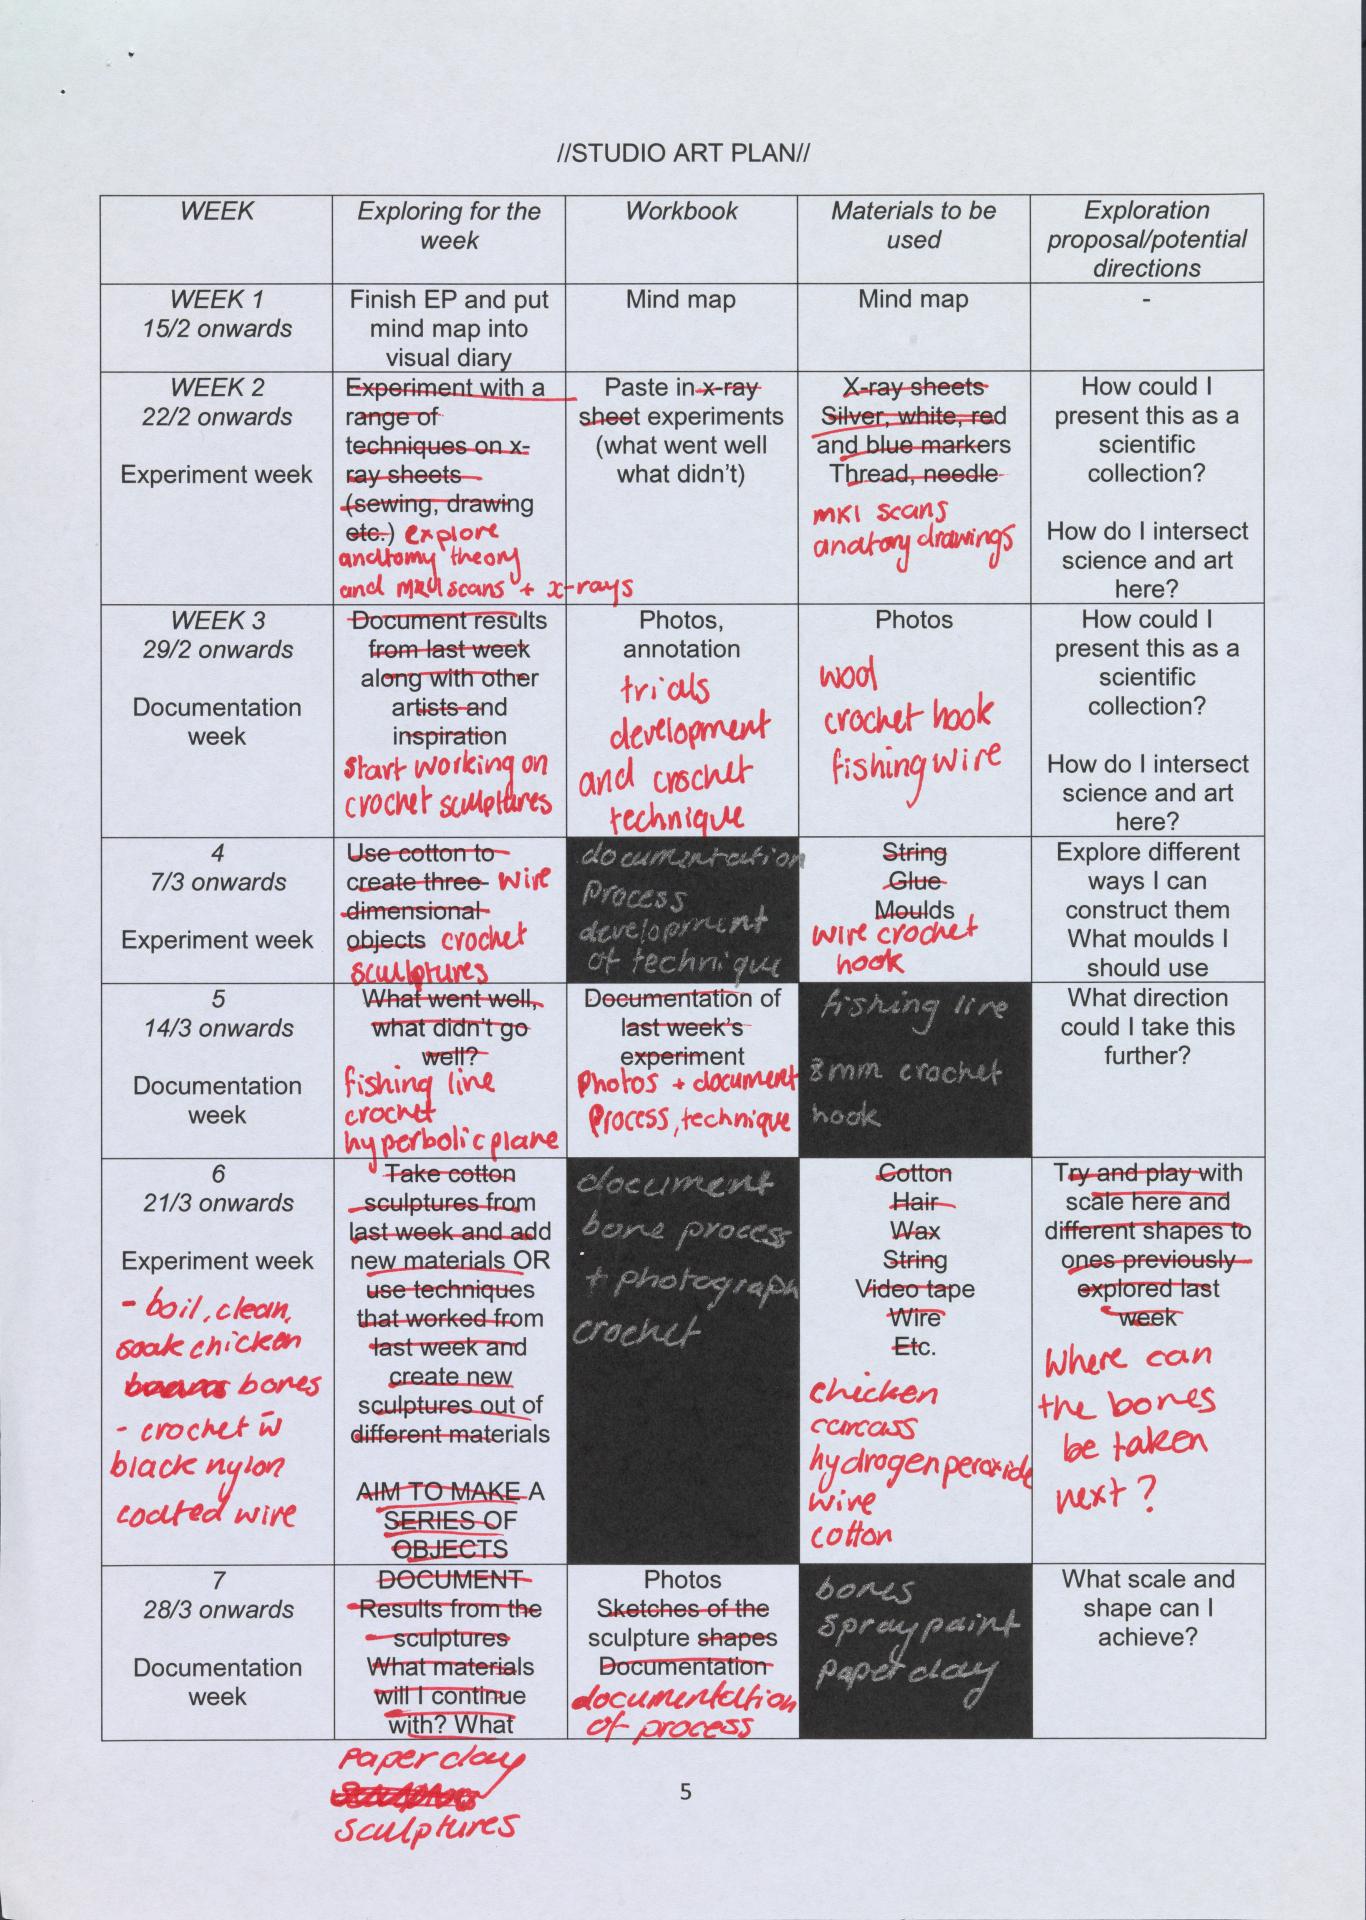 //STUDIO ART PLAN//
WEEK
Exploring for the
week
Workbook
Materials to be
used
Exploration
proposal/potential
directions
WEEK 1
15/2 onwards
Finish EP and put
mind map into
visual diary
Mind map
Mind map
-
WEEK 2
22/2 onwards
Experiment week
Experiment with a
range of
techniques on x-
ray sheets
(sewing, drawing
etc.) explore
anatomy theory
and MRI scans + x-rays
Paste in x-ray
sheet experiments
(what went well
what didn't)
X-ray sheets
Silver, white, red
and blue markers
Thread, needle
MRI scans
anatomy drawings
How could I
present this as a
scientific
collection?
How do I intersect
science and art
here?
WEEK 3
29/2 onwards
Documentation
week
Document results
from last week
along with other
artists and
inspiration
start working on
crochet sculptures
Photos,
annotation
trials
development
and crochet
technique
Photos
wool
crochet hook
fishing wire
How could I
present this as a
scientific
collection?
How do I intersect
science and art
here?
4
7/3 onwards
Experiment week
Use cotton to
create three- wire
dimensional
objects crochet
sculptures
documentation
process
development
of technique
String
Glue
Moulds
wire crochet
hook
Explore different
ways I can
construct them
What moulds I
should use
5
14/3 onwards
Documentation
week
What went well,
what didn't go
well?
fishing line
crochet
hyperbolic plane
Documentation of
last week's
experiment
photos + document
process, technique
fishing line
8mm crochet
hook
What direction
could I take this
further?
6
21/3 onwards
Experiment week
- boil, clean,
soak chicken
bones
- crochet w̄
black nylon
coated wire
Take cotton
sculptures from
last week and add
new materials OR
use techniques
that worked from
last week and
create new
sculptures out of
different materials
AIM TO MAKE A
SERIES OF
OBJECTS
document
bone process
+ photograph
crochet
Cotton
Hair
Wax
String
Video tape
Wire
Etc.
chicken
carcass
hydrogen peroxide
wire
cotton
Try and play with
scale here and
different shapes to
ones previously
explored last
week
Where can
the bones
be taken
next?
7
28/3 onwards
Documentation
week
DOCUMENT
Results from the
sculptures
What materials
will I continue
with? What
paper clay
sculptures
Photos
Sketches of the
sculpture shapes
Documentation
documentation
of process
bones
spray paint
paper clay
What scale and
shape can I
achieve?
5